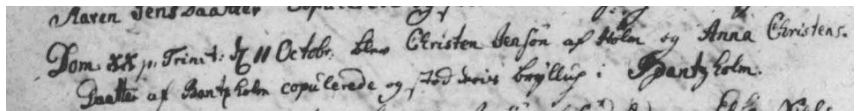 Maren Jens Daatter Copulered og
Dom. XX p. Trinit: d 11 Octobr. blev Christen Jensøn af Holm og Anna Christens-
Daatter af Bantzholm copulerede og stod deris bryllup i Bantzholm.